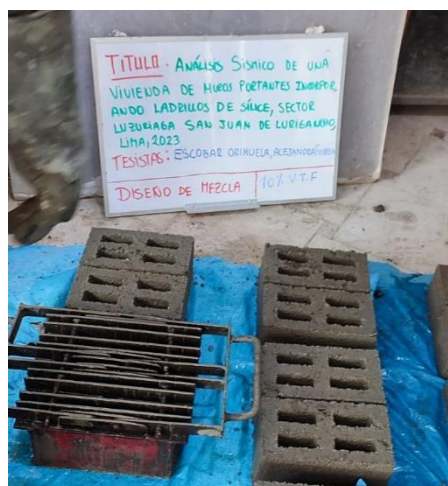 TITULO: ANÁLISIS SISMICO DE UNA
VIVIENDA DE MUROS PORTANTES INCORPOR
ANDO LADRILLOS DE SÍLICE, SECTOR
LUZURIAGA SAN JUAN DE LURIGANCHO,
LIMA, 2023
TESISTAS: ESCOBAR ORIHUELA, ALEJANDRA
DISEÑO DE MEZCLA 10% V.T.F